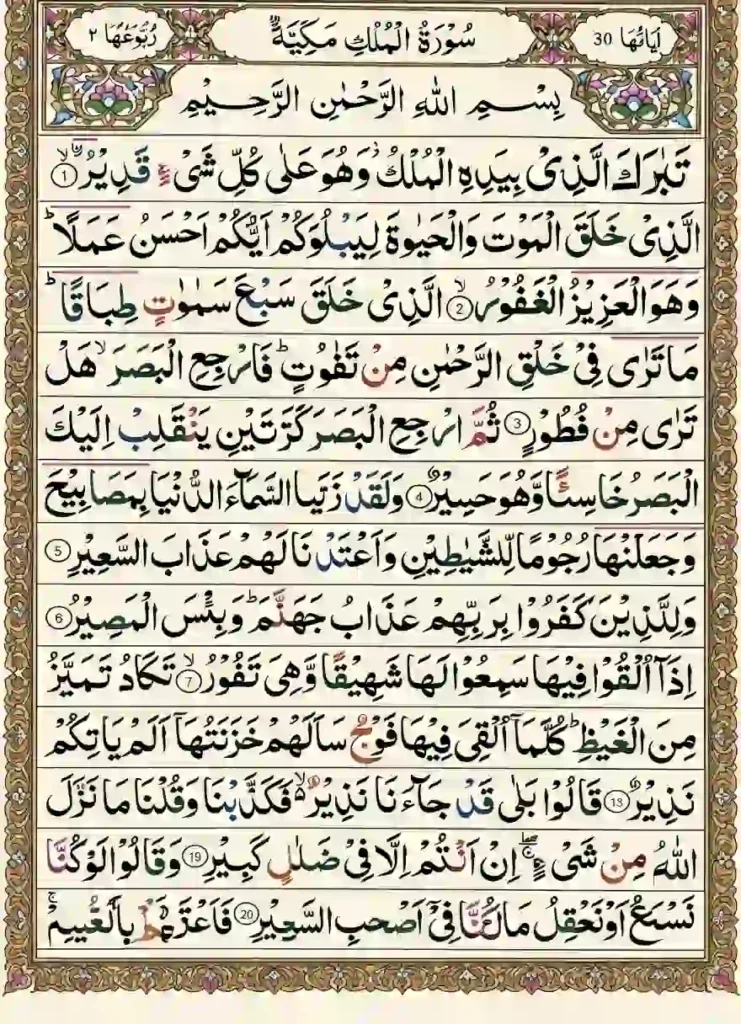 اٰيَاتُهَا 30 سُوْرَةُ الْمُلْكِ مَكِّيَّةٌ رُبُوْعُهَا ٢
بِسْمِ اللهِ الرَّحْمٰنِ الرَّحِيْمِ
تَبٰرَكَ الَّذِىْ بِيَدِهِ الْمُلْكُ وَهُوَ عَلٰى كُلِّ شَىْءٍ قَدِيْرُ ۙ 1
الَّذِىْ خَلَقَ الْمَوْتَ وَالْحَيٰوةَ لِيَبْلُوَكُمْ اَيُّكُمْ اَحْسَنُ عَمَلًا ؕ
وَهَوَ الْعَزِيْزُ الْغَفُوْرُ ۙ 2 الَّذِىْ خَلَقَ سَبْعَ سَمٰوٰتٍ طِبَاقًا ؕ
مَا تَرٰى فِىْ خَلْقِ الرَّحْمٰنِ مِنْ تَفٰوُتٍ ؕ فَارْجِعِ الْبَصَرَ ۙ هَلْ
تَرٰى مِنْ فُطُوْرٍ 3 ثُمَّ ارْجِعِ الْبَصَرَ كَرَّتَيْنِ يَنْقَلِبْ اِلَيْكَ
الْبَصَرُ خَاسِئًا وَّهُوَ حَسِيْرٌ 4 وَلَقَدْ زَتَيا السَّمَآءَ الدُّنْيَا بِمَصَابِيْحَ
وَجَعَلْنٰهَا رُجُوْمًا لِّلشَّيٰطِيْنِ وَاَعْتَدْ نَا لَهُمْ عَذَابَ السَّعِيْرِ 5
وَلِلَّذِيْنَ كَفَرُوْا بِرَبِّهِمْ عَذَابُ جَهَنَّمَ ؕ وَبِئْسَ الْمَصِيْرُ 6
اِذَآ اُلْقُوْا فِيْهَا سَمِعُوْا لَهَا شَهِيْقًا وَّهِىَ تَفُوْرُ ۙ 7 تَكَادُ تَمَيَّزُ
مِنَ الْغَيْظِ ؕ كُلَّمَآ اُلْقِىَ فِيْهَا فَوْجٌ سَاَلَهُمْ خَزَنَتُهَآ اَلَمْ يَاتِكُمْ
نَذِيْرٌ 13 قَالُوْا بَلٰى قَدْ جَآءَ نَا نَذِيْرٌ ۙ فَكَذَّبْنَا وَقُلْنَا مَا نَزَّلَ
اللهُ مِنْ شَىْءٍ ۚ اِنْ اَنْتُمْ اِلَّا فِىْ ضَلٰلٍ كَبِيْرٍ 19 وَقَالُوْا لَوْ كُنَّا
نَسْمَعُ اَوْ نَعْقِلُ فِىْۤ اَصْحٰبِ السَّعِيْرِ 20